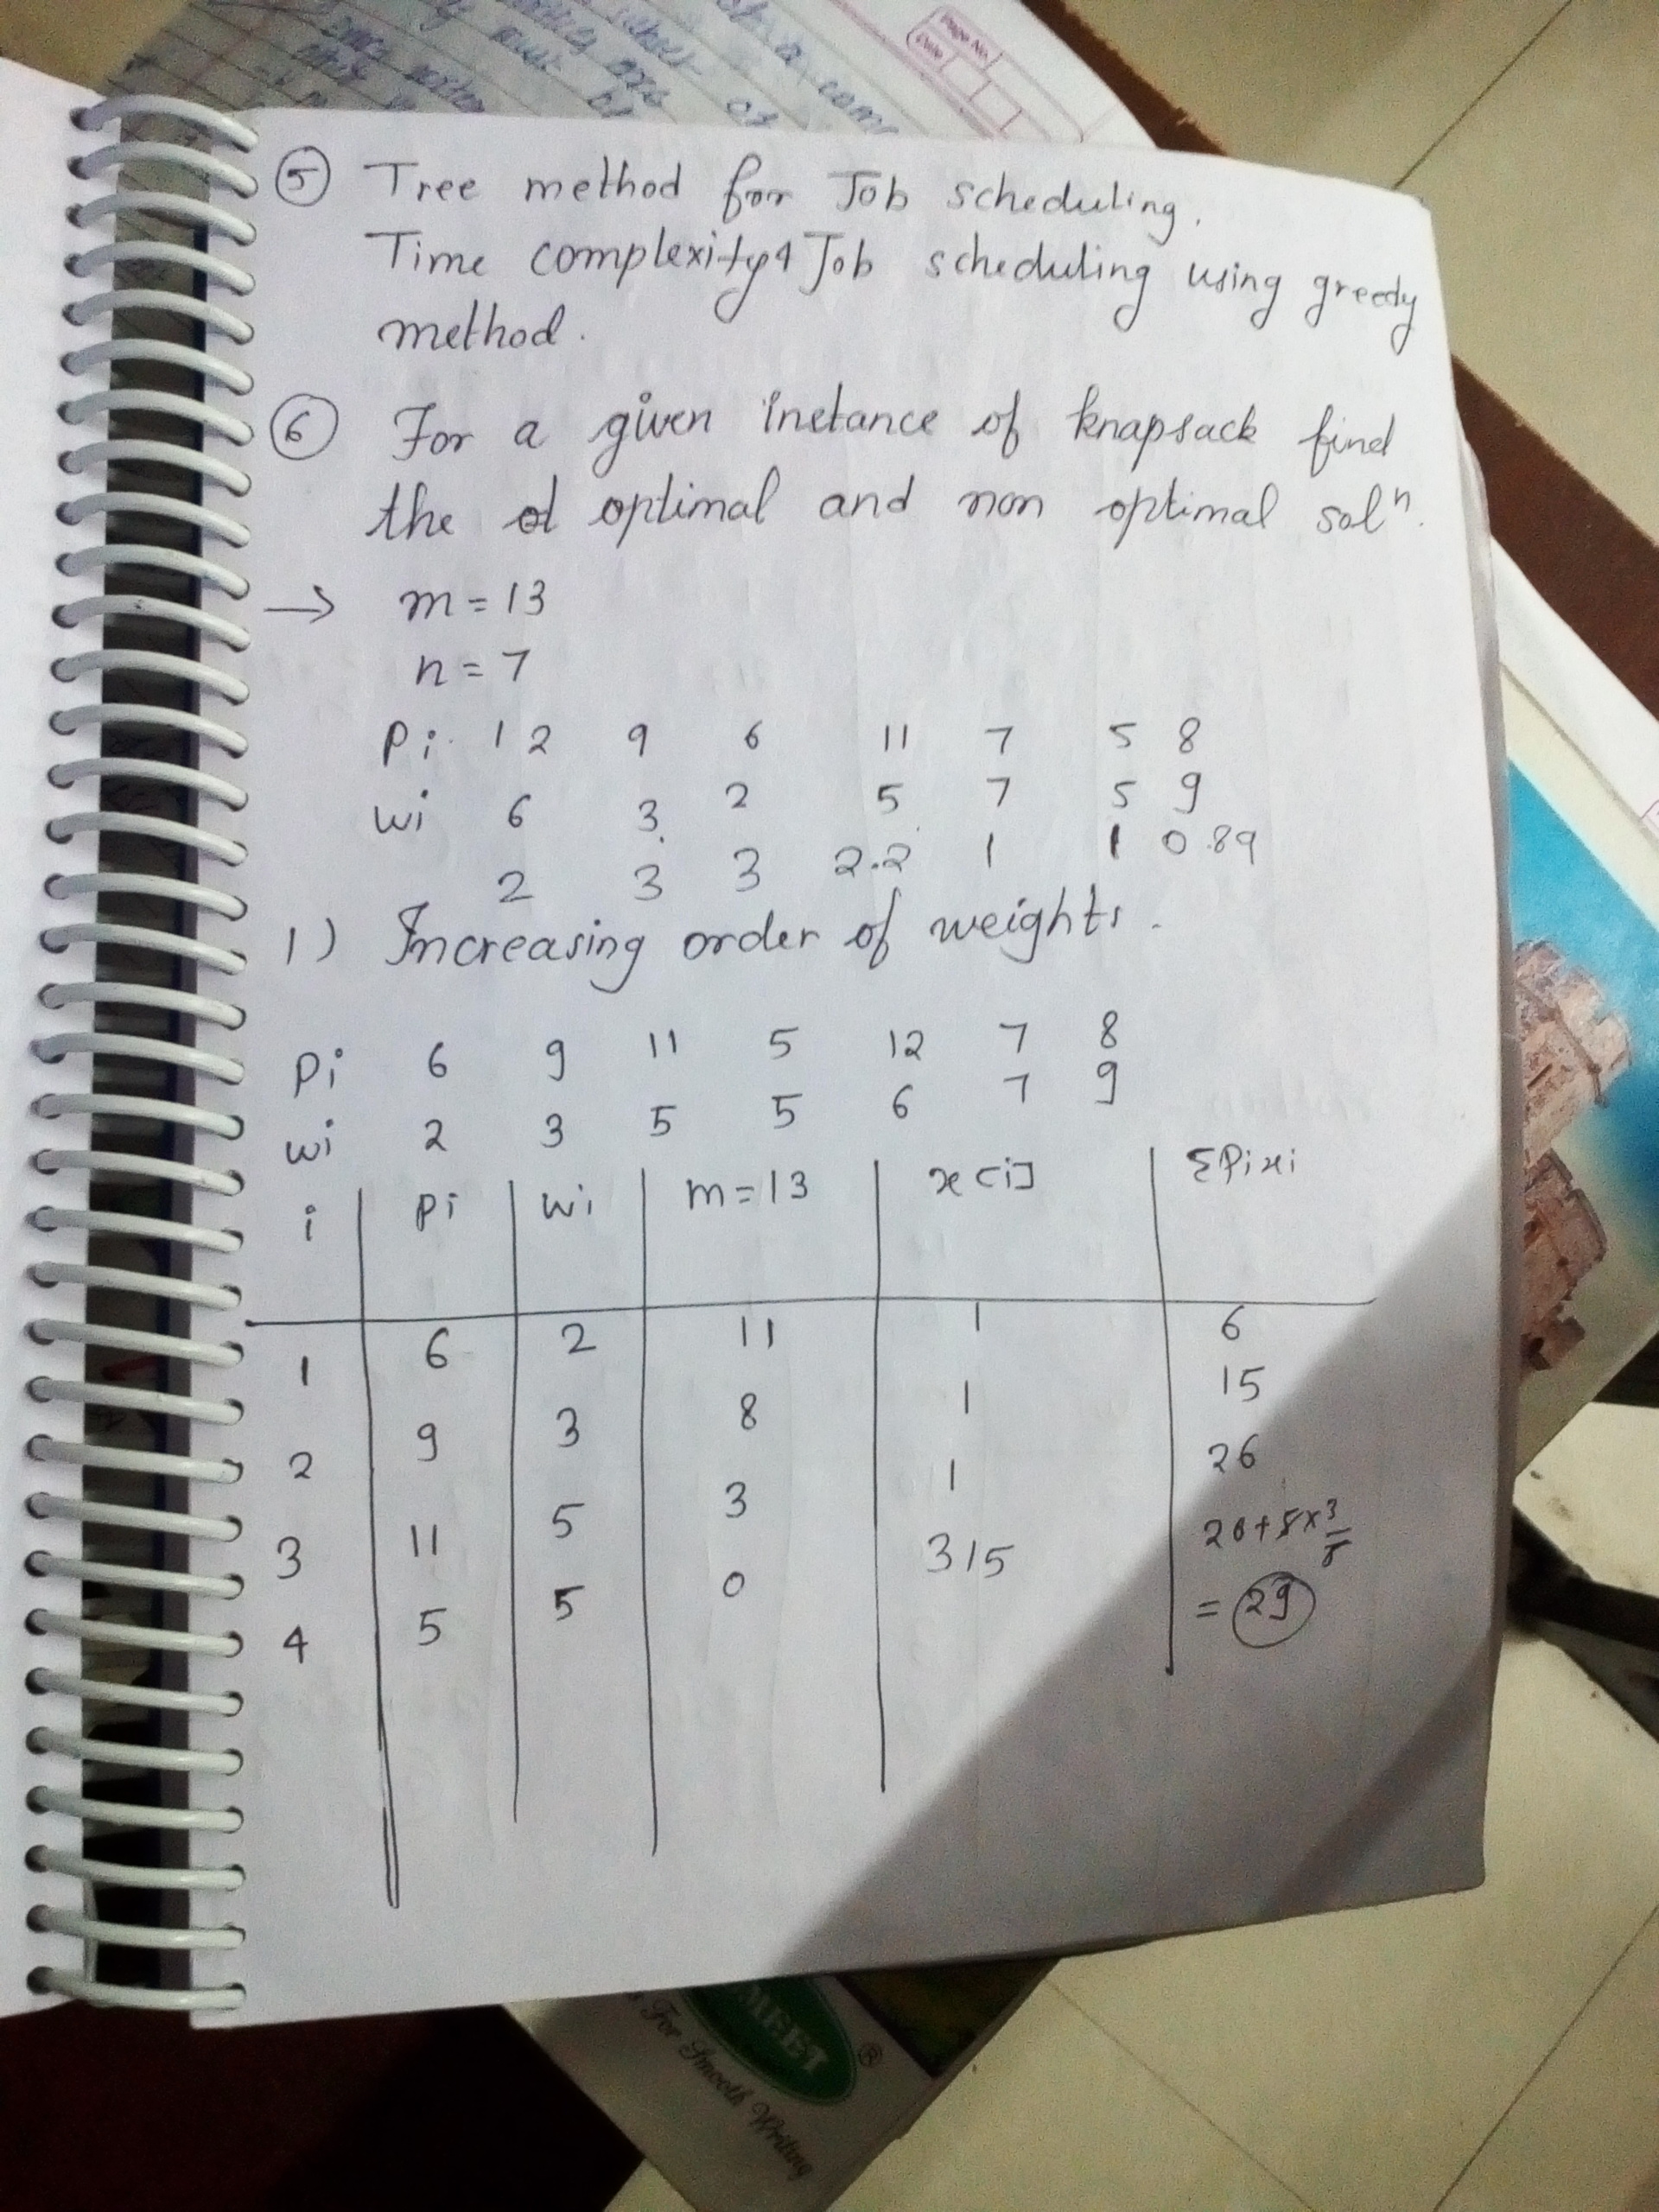 Page No.
Date
⑤ Tree method for Job scheduling.
Time complexity of Job scheduling using greedy
method.
⑥ For a given instance of knapsack find
the optimal and non optimal solⁿ.
→ m = 13
n = 7
Pi 12 9 6 11 7 5 8
wi 6 3 2 5 7 5 9
2 3 3 2.2 1 1 0.89
1) Increasing order of weights.
Pi 6 9 11 5 12 7 8
wi 2 3 5 5 6 7 9
i Pi wi m=13 x[i] ΣPixi
1 6 2 11 1 6
2 9 3 8 1 15
3 11 5 3 1 26
4 5 5 0 3/5 26+5×3/5
= 29
For Smooth Writing